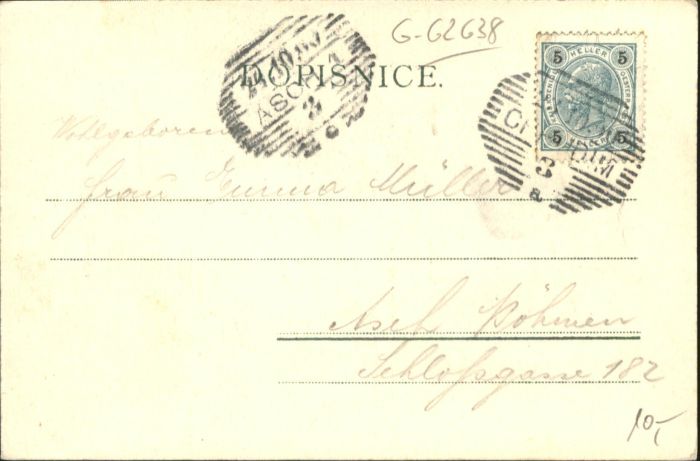 G-62638
5 HELLER 5
5 5
DOPISNICE.
ASC
Wohlgeboren
Frau Emma Müller
Asch Böhmen
Schloßgasse 182
10,-